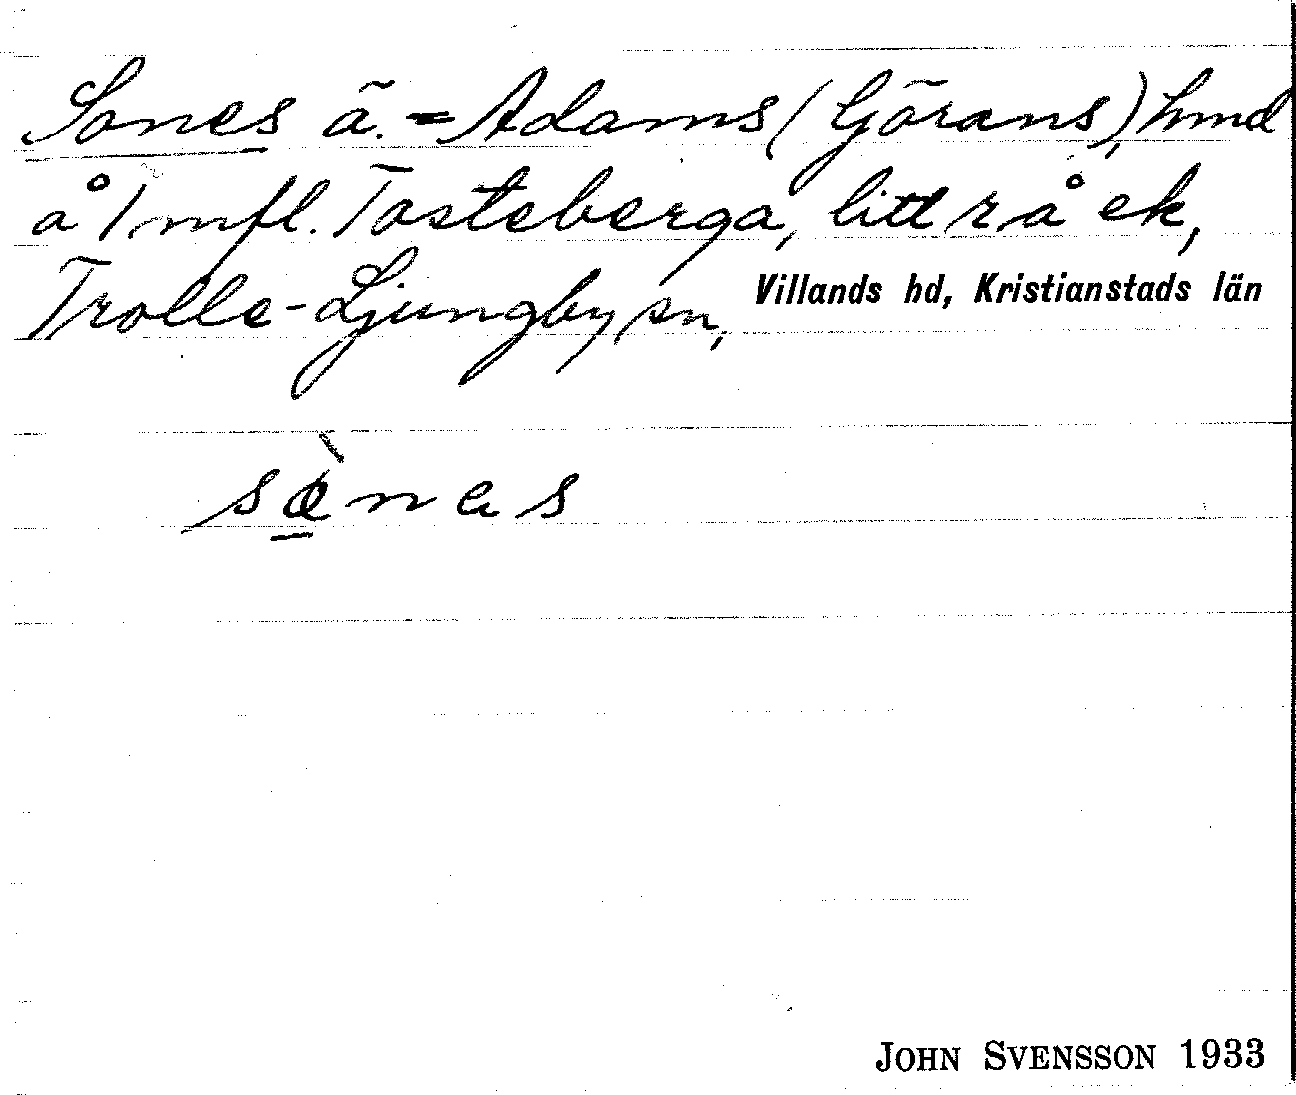 Sones ä. = Adams (Görans), hmd
å 1 mfl. Tosteberga, litt r å ek,
Trolle-Ljungby sn, Villands hd, Kristianstads län
JOHN SVENSSON 1933